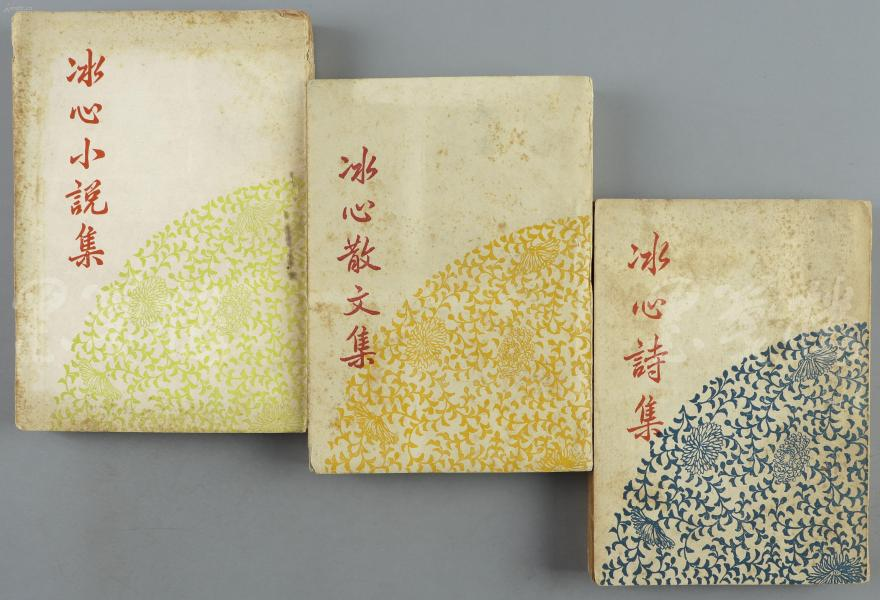 冰心小說集
冰心散文集
冰心詩集